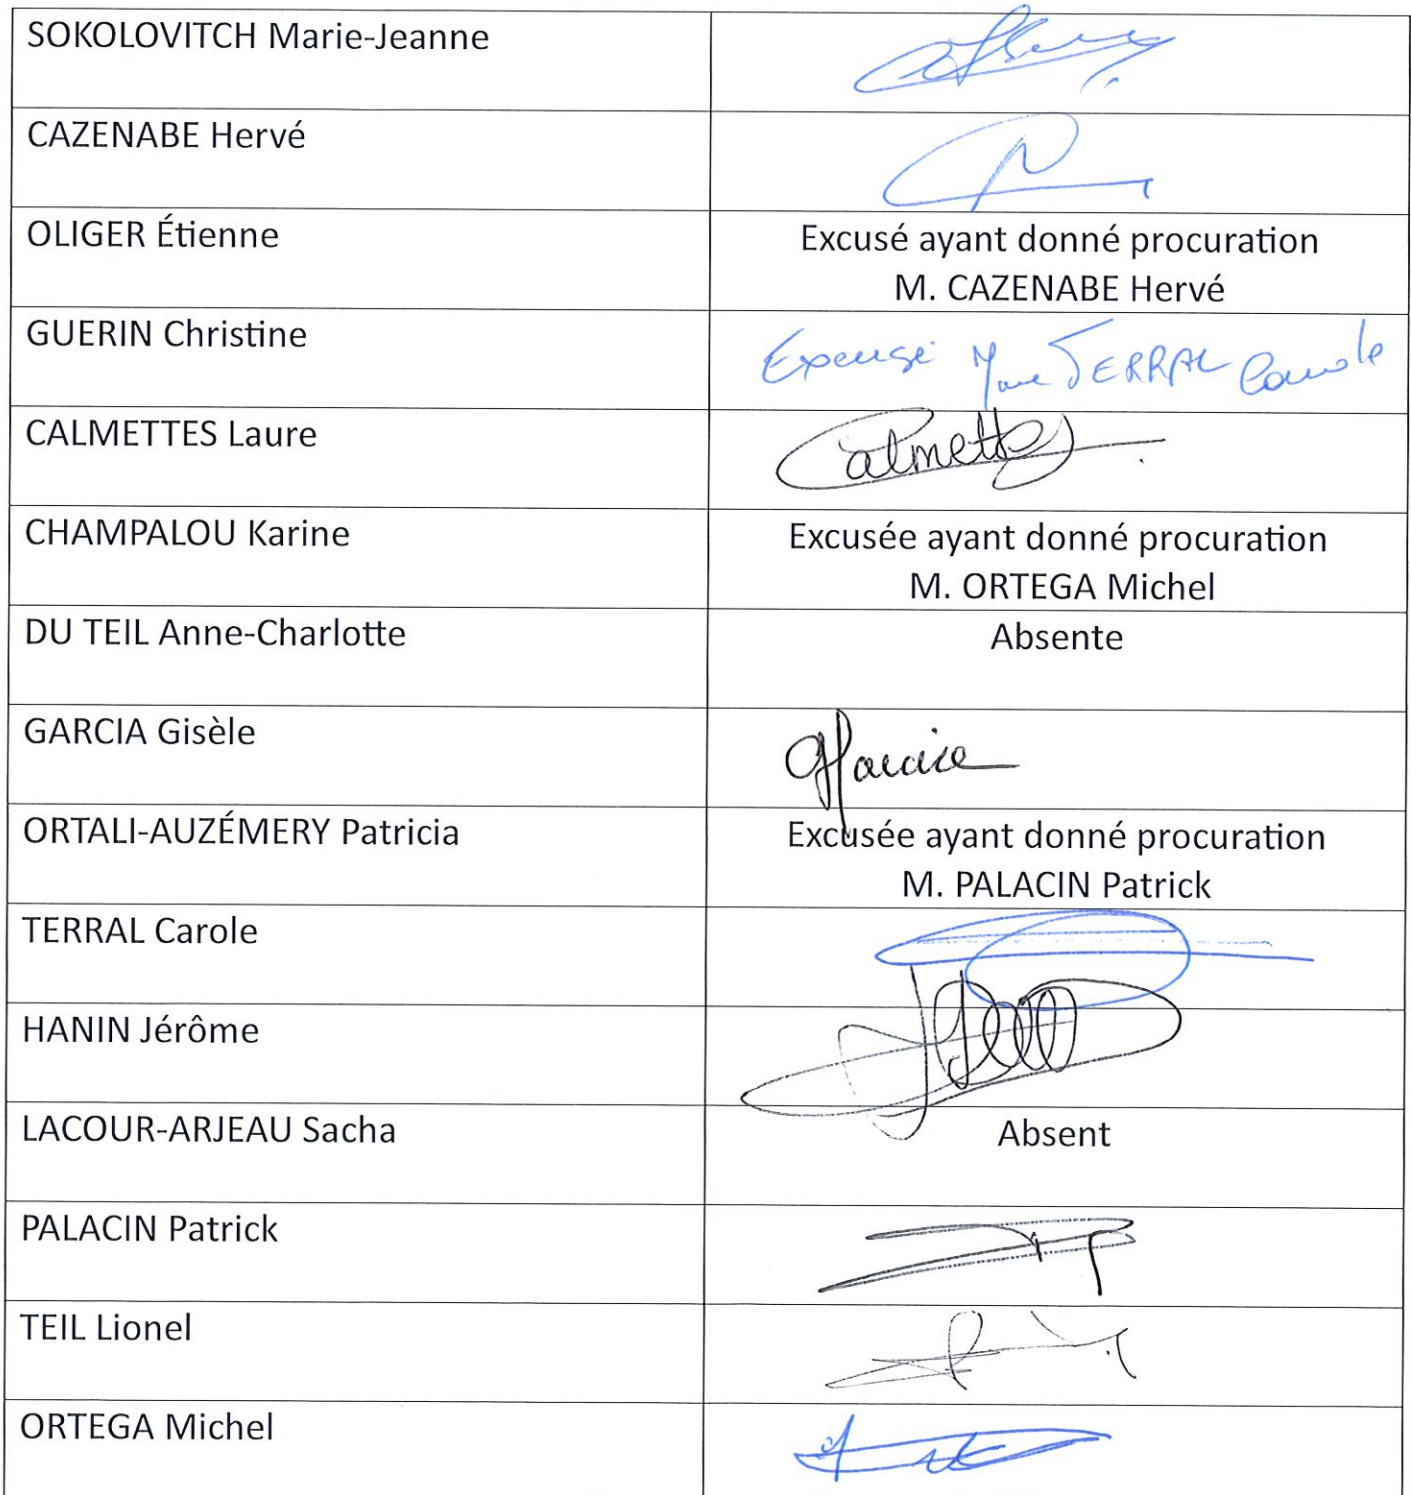 SOKOLOVITCH Marie-Jeanne
CAZENABE Hervé
OLIGER Étienne
Excusé ayant donné procuration
M. CAZENABE Hervé
GUERIN Christine
Excusé Mme TERRAL Carole
CALMETTES Laure
Calmettes
CHAMPALOU Karine
Excusée ayant donné procuration
M. ORTEGA Michel
DU TEIL Anne-Charlotte
Absente
GARCIA Gisèle
ORTALI-AUZÉMERY Patricia
Excusée ayant donné procuration
M. PALACIN Patrick
TERRAL Carole
HANIN Jérôme
LACOUR-ARJEAU Sacha
Absent
PALACIN Patrick
TEIL Lionel
ORTEGA Michel